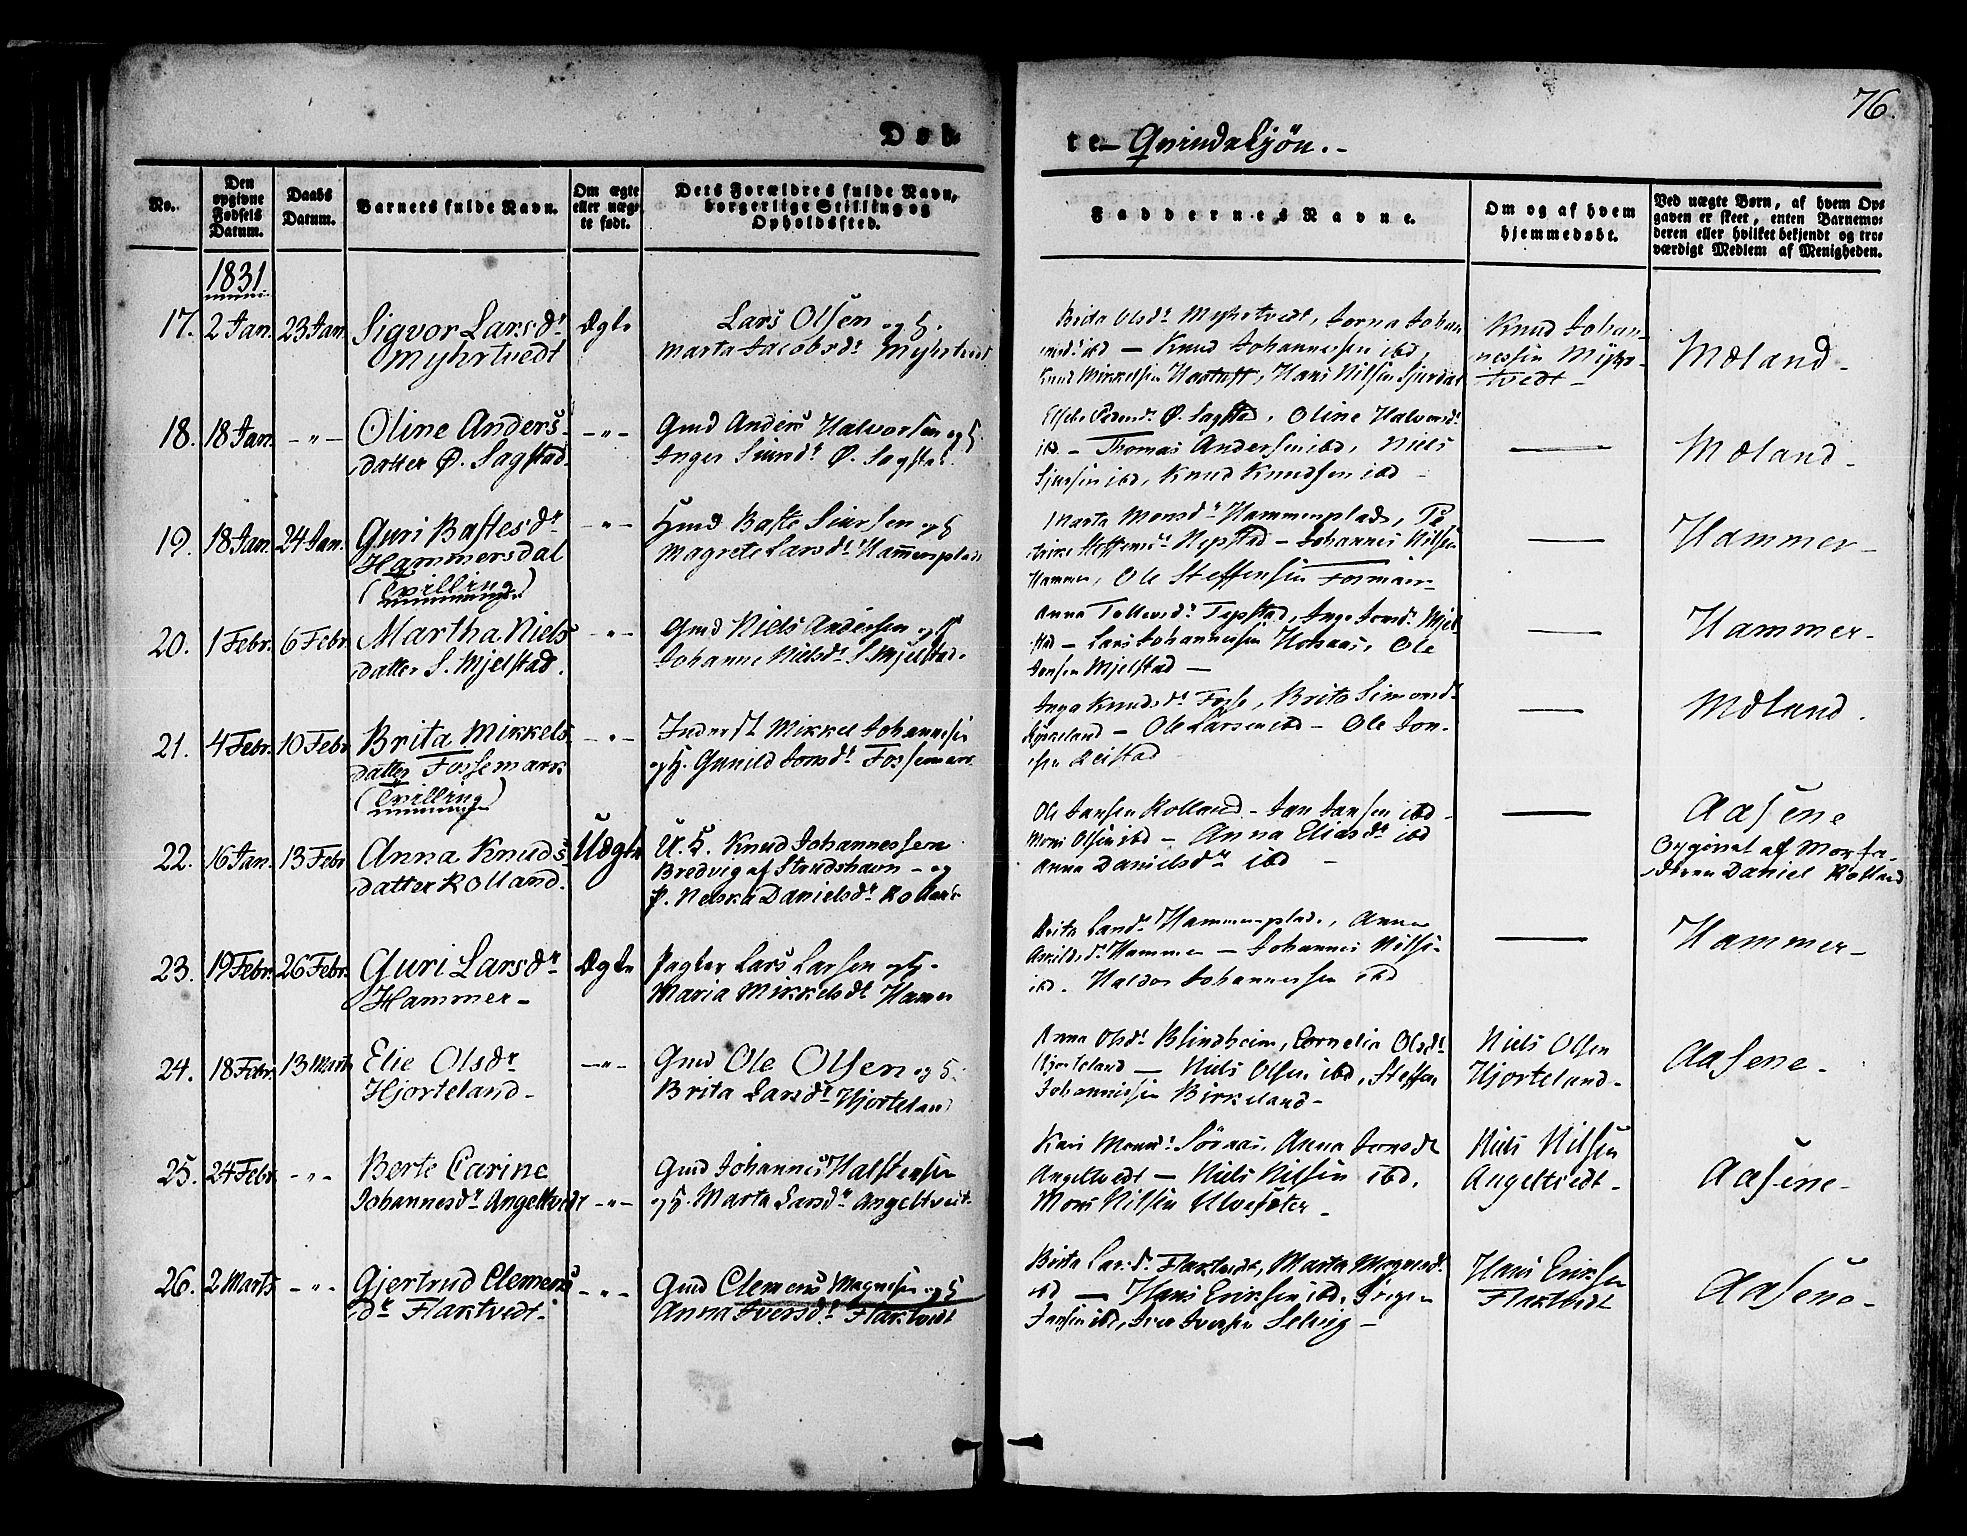 76.
Døb
te – Qvindekjön. –
No.
Den opgivne Fødsels Datum.
Daabs Datum.
Barnets fulde Navn.
Om ægte eller uægte født.
Dets Forældres fulde Navn, borgerlige Stilling og Opholdssted.
Faddernes Navne.
Om og af hvem hjemmedøbt.
Ved uægte Børn, af hvem Opgaven er skeet, enten Barnemoderen eller hvilket bekjendt og troværdigt Medlem af Menigheden.
1831
17. 2 Jan. 23 Jan. Sigvor Larsdr Myhrtvedt
Ægte
Lars Olsen og H.
Marta Jacobsdr Myhrtvedt
Brita Olsdr Myhrtvedt, Johan
ibd – Knud Johannessen ibd,
Knud Mikkelsen, Hans Nilsen
Knud Johan-
nessen Myhr-
tvedt –
Mæland –
18. 18 Jan. – " – Oline Anders-
datter Ø. Sagstad.
– " –
Gmd Anders Halvorsen og H.
Inger Ø. Sagstad.
Ø. Sagstad, Oline Halvorsdr
ibd. – Thomas Andersen ibd, Niels
ibd, Knud Knudsen ibd –
—
Mæland –
19. 18 Jan. 24 Jan. Guri Bastesdr
Hammersdal
(Tvilling)
– " –
Hmd Baste Siursen og H
Magrete Larsdr Hammerplads
Marta Monsdr Hammerplads,
Nepstad – Johannes Nilsen
Hammer, Ole Steffensen
—
Hammer –
20. 1 Febr. 6 Febr. Martha Niels
datter S. Mjelstad.
– " –
Gmd Niels Andersen og H
Johanne Nielsdr S. Mjelstad.
Anna
– Lars Johannessen, Ole
Jonsen Mjelstad –
—
Hammer –
21. 4 Febr. 10 Febr. Brita Mikkels
datter Fossemark
(Tvilling)
– " –
Inderst Mikkel Johannesen
og H. Gunild Jonsdr Fossemark
Inga Knudsdr Fosse, Brita Simonsdr
– Ole Larsen ibd – Ole Jon-
sen
—
Mæland.
22. 16 Jan. 13 Febr Anna Knuds
datter Rolland.
Uægte
U.K. Knud Johannessen
Bredvig af Strudshavn – og
P. Neska Danielsdr Rolland
Ole Jansen Rolland – Jan Jansen ibd –
Mons Olsen ibd – Anna Eliasdr ibd
Anna Danielsdr ibd –
—
Aasene
Opgivet af Morfa-
deren Daniel Rolland
23. 19 Febr. 26 Febr. Guri Larsdr
Hammer –
Ægte
Pagter Lars Larsen og H.
Maria Mikkelsdr Hamer
Brita Hammerplads, Anna
Hammer – Johannes Nilsen
ibd. Haldor Johannessen ibd
—
Hammer –
24. 18 Febr. 13 Marts Elie Olsdr
Hjorteland –
– " –
Gmd Ole Olsen og H.
Brita Larsdr Hjorteland
Anna Olsdr Blindheim, Cornelia Olsdr
Hjorteland – Niels Olsen ibd, Steffen
Johannessen Birkeland –
Niels Olsen
Hjorteland –
Aasene –
25. 24 Febr. – " – Berte Carine
Johannesdr Angeltvedt
– " –
Gmd Johannes Halstensen
og H. Marta Larsdr Angeltvedt.
Kari Monsdr, Anna Jonsdr
Angeltvedt – Niels Nilsen ibd.
Mons Nilsen Ulvesæter –
Niels Nilsen
Angeltvedt –
Aasene –
26. 2 Marts – " – Gjertrud Clemens
dr Flaktvedt –
– " –
Gmd Clemens Magnesen og H
Anna Iversdr Flaktvedt
Brita Flaktvedt, Marta
ibd – Hans Eriksen ibd,
Jansen ibd, Iver Iversen –
Hans Eriksen
Flaktvedt
Aasene –